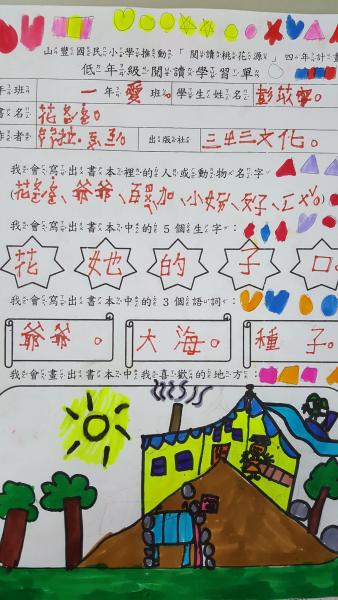 山豐國民小學推動「閱讀桃花源」四年計畫
低年級閱讀學習單
年班 一年愛班。 學生姓名 彭苡寧。
書名 花ㄆㄛˊㄆㄛ˙。
作者
出版社 三之三文化。
我會寫出書本裡的人或動物名字
花ㄆㄛˊㄆㄛ˙、爺爺、
我會寫出書本中的5個生字：
花 她 的 子 口。
我會寫出書本中的3個語詞：
爺爺。 大海。 種子。
我會畫出書本中我喜歡的地方：